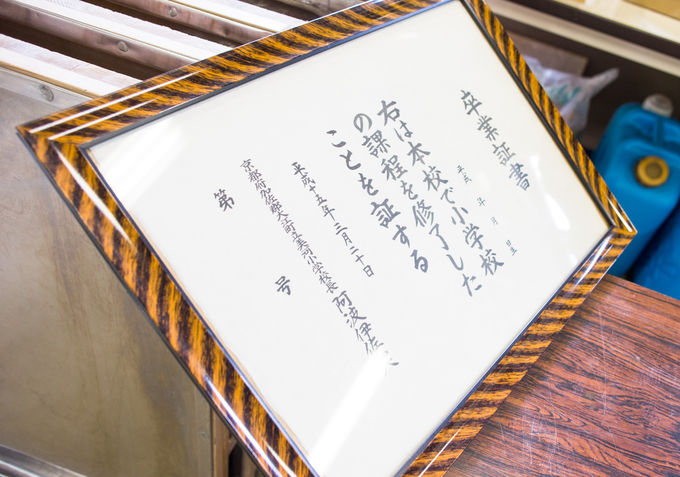 卒業証書
平成 年 月 日生
右は本校で小学校
の課程を修了した
ことを証する
平成十五年三月二十日
京都府加佐郡大江町立美河小学校長 阿波伊佐
第 号